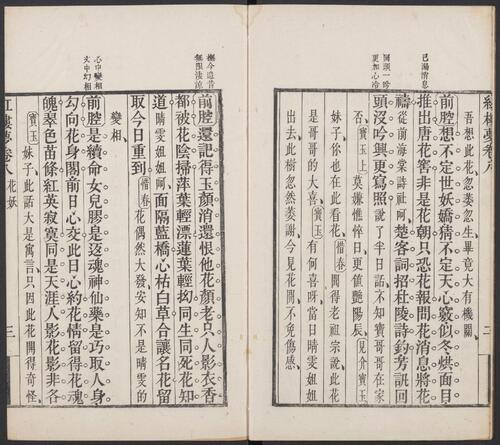 紅樓夢卷八
二
吾想此花忽萎忽生畢竟大有機關
已漏消息
前腔想不定世妖嬌猜不定天心竅似冬烘面目
推出唐花窖非是花朝只恐花報問花消息將花
禱從前海棠詩社呵楚客詞招杜陵詩鈔芳訊回
頭一吟
更加心冷
頭沒吟興更寫照說了半日話不知寶哥哥在家
否寶玉上莫嫌憔悴日更值艷陽辰見介寶玉
妹子你也在此看花惜春聞得老祖宗說此花
是哥哥的大喜寶玉有何喜呀當日晴雯姐姐
出去此樹忽然萎謝今見花開不免傷感
撫今追昔
無限淒涼
前腔還記得玉顏消還恨他花顏老只人影衣香
都被花陰掃萍葉輕漂蓮葉輕拗同生同死花知
道晴雯姐姐呵面隔藍橋心祐白草合讓名花留
取今日重到惜春花偶然大發安知不是晴雯的
變相
心中變相
文中幻相
前腔是續命女兒膠是返魂神仙藥是巧取人身
勾向花身閣前日心交此日心約花情留得花魂
魄翠色苗條紅英寂寞同是天涯人影花影非各
寶玉妹子此話大是寓言只因此花開得奇怪
紅樓夢卷八花妖
三